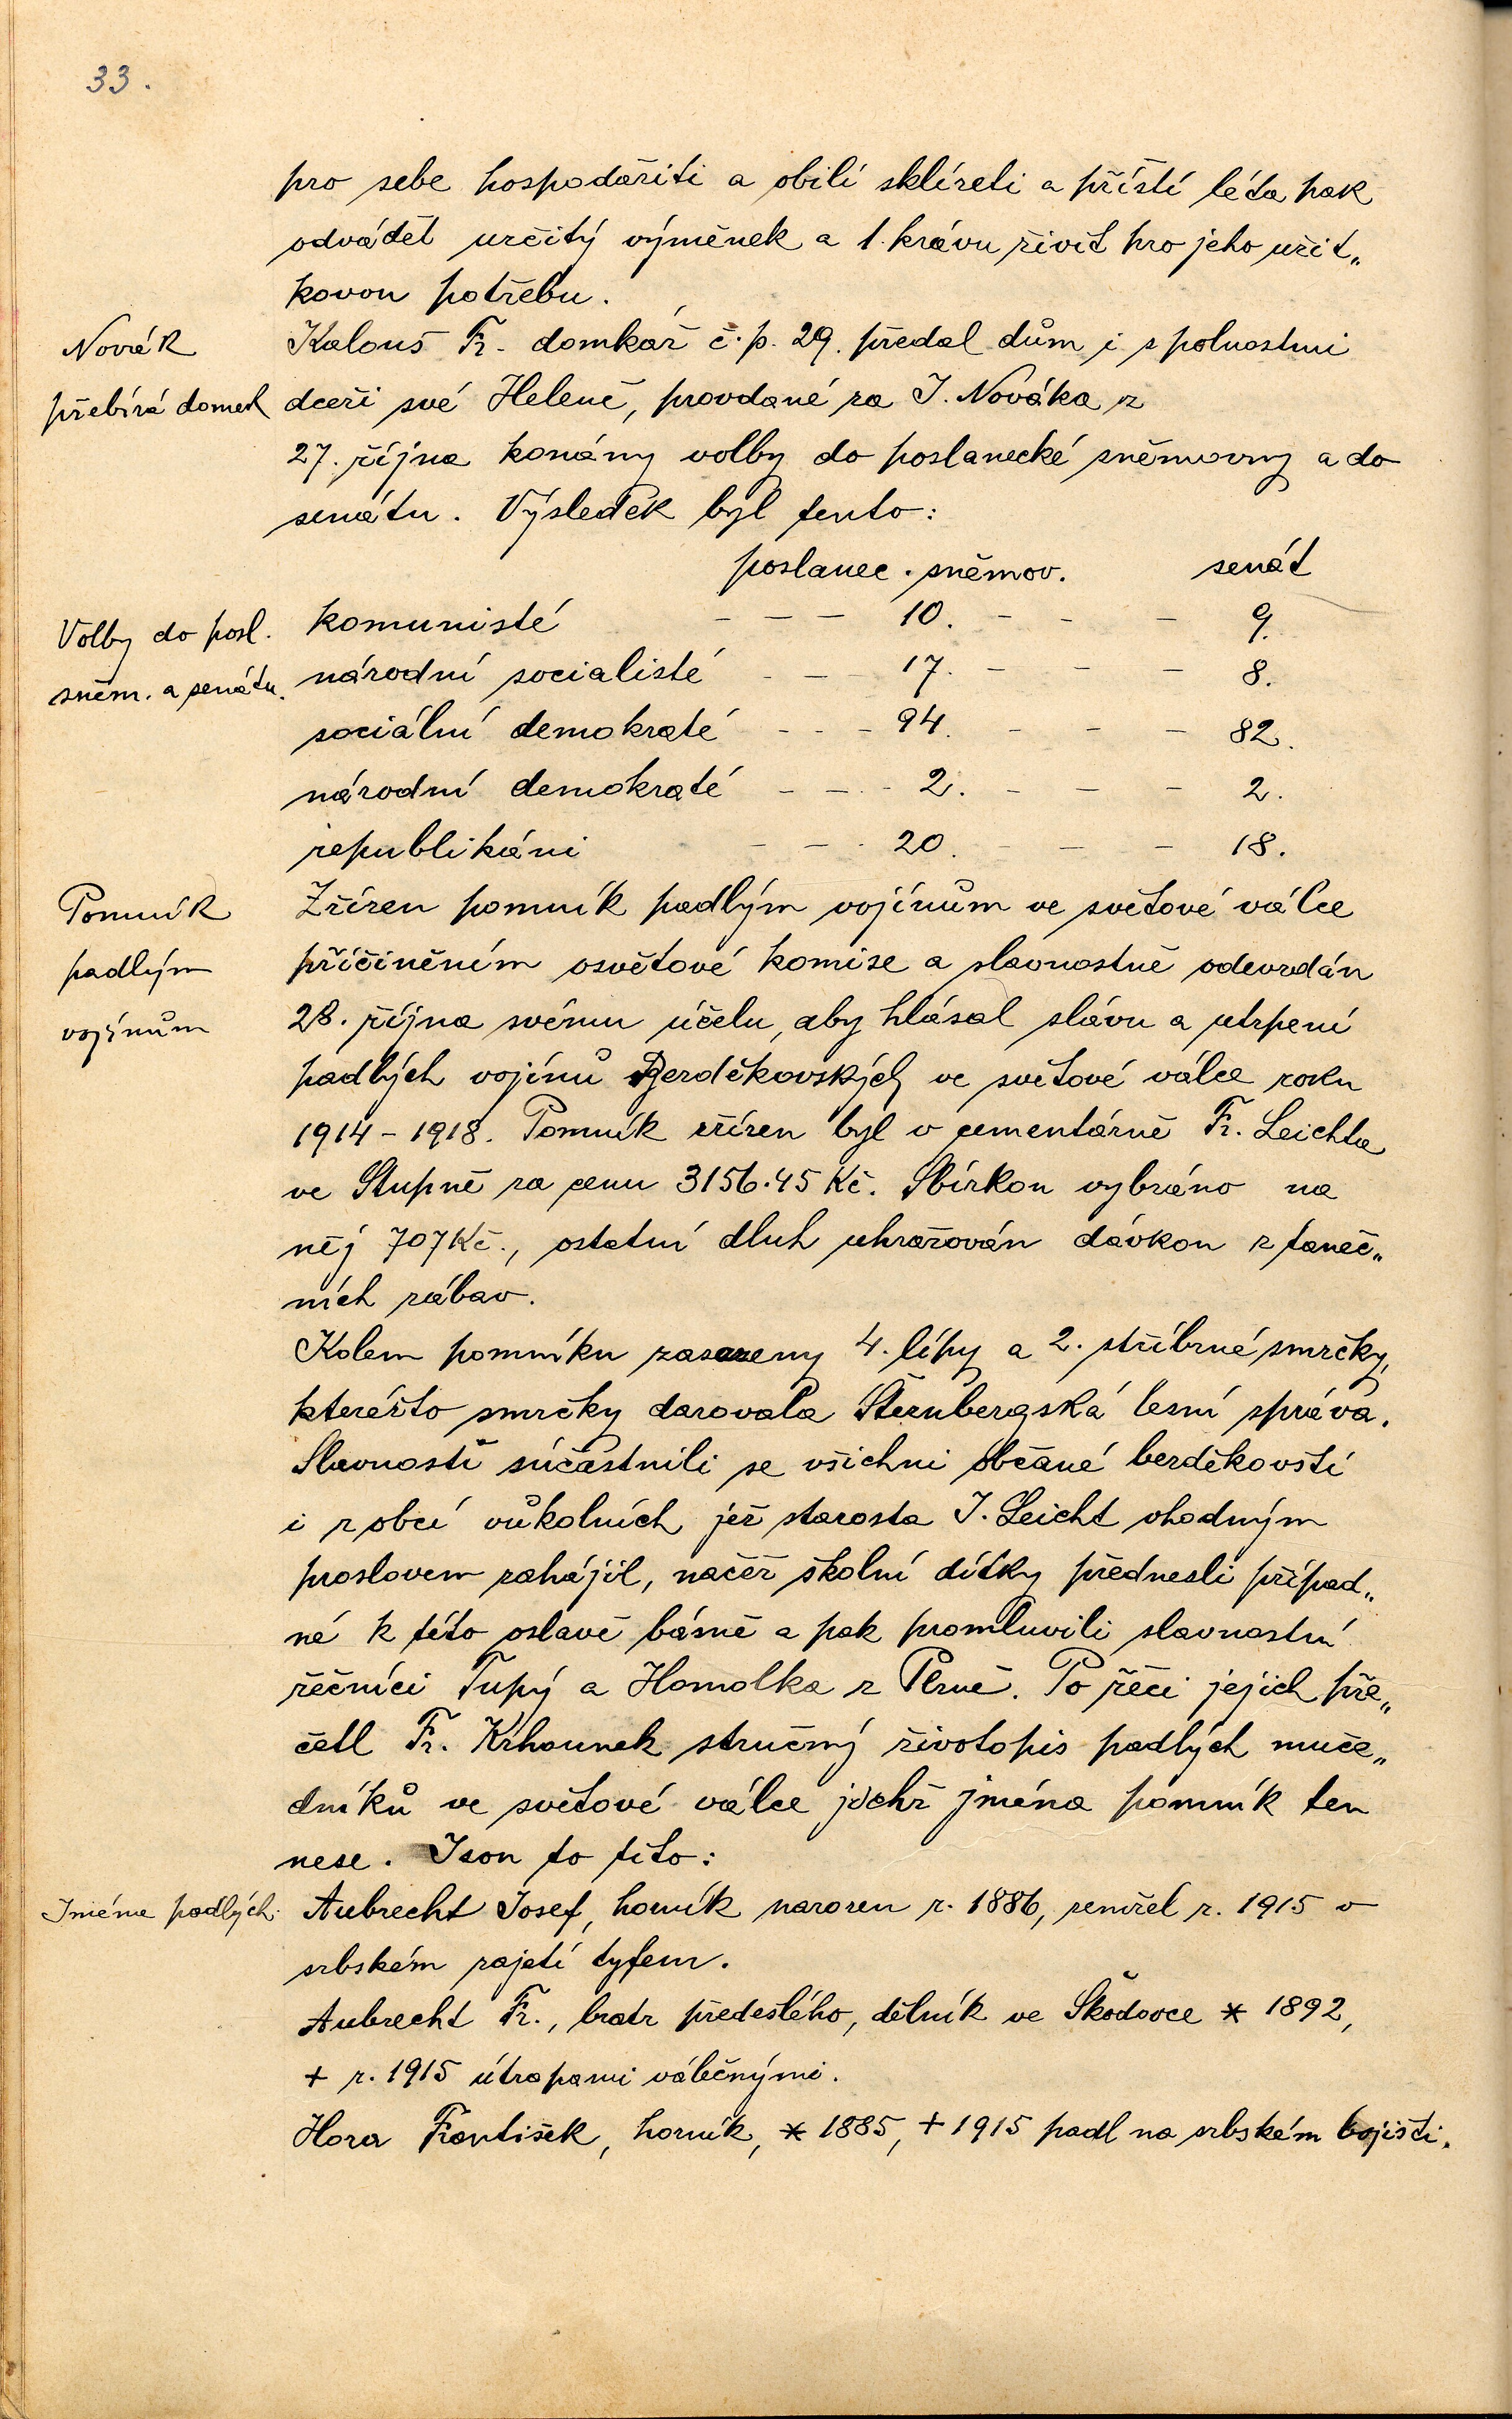 33.
pro sebe hospodařiti a obilí sklízeti a příští léta pak
odvádět určitý výměnek a 1. krávu živit pro jeho užit„
kovou potřebu.
Novák
přebírá domek
Kalous Fr. domkář č. p. 29. předal dům i s polnostmi
dceři své Heleně, provdané za J. Nováka z
27. října konány volby do poslanecké sněmovny a do
senátu. Výsledek byl tento:
poslanec. sněmov. senát
Volby do posl.
sněm. a senátu.
komunisté - - - 10. - - - 9.
národní socialisté - - - 17. - - - 8.
sociální demokraté - - - 94. - - - 82.
národní demokraté - - - 2. - - - 2.
republikáni - - - 20. - - - 18.
Pomník
padlým
vojínům
Zřízen pomník padlým vojínům ve světové válce
přičiněním osvětové komise a slavnostně odevzdán
28. října svému účelu, aby hlásal slávu a utrpení
padlých vojínů Berděkovských ve světové válce roku
1914 - 1918. Pomník zřízen byl v cementárně Fr. Leichta
ve Stupně za cenu 3156.45 Kč. Sbírkou vybráno na
něj 707 Kč., ostatní dluh uhražován dávkou z taneč„
ních zábav.
Kolem pomníku zasazeny 4. lípy a 2. stříbrné smrčky,
kteréžto smrčky darovala Šternbergská lesní správa.
Slavnosti súčastnili se všichni občané berděkovští
i z obcí vůkolních, jež starosta J. Leicht vhodným
proslovem zahájil, načež školní dítky přednesli případ„
né k této oslavě básně a pak promluvili slavnostní
řečníci Tupý a Homolka z Plzně. Po řeči jejich pře„
četl Fr. Krhounek stručný životopis padlých muče„
dníků ve světové válce jichž jména pomník ten
nese. Jsou to tito:
Jména padlých.
Aubrecht Josef, horník narozen r. 1886, zemřel r. 1915 v
srbském zajetí tyfem.
Aubrecht Fr., bratr předešlého, dělník ve Škodovce * 1892,
+ r. 1915 útrapami válečnými.
Hora František, horník, * 1885, + 1915 padl na srbském bojišti.